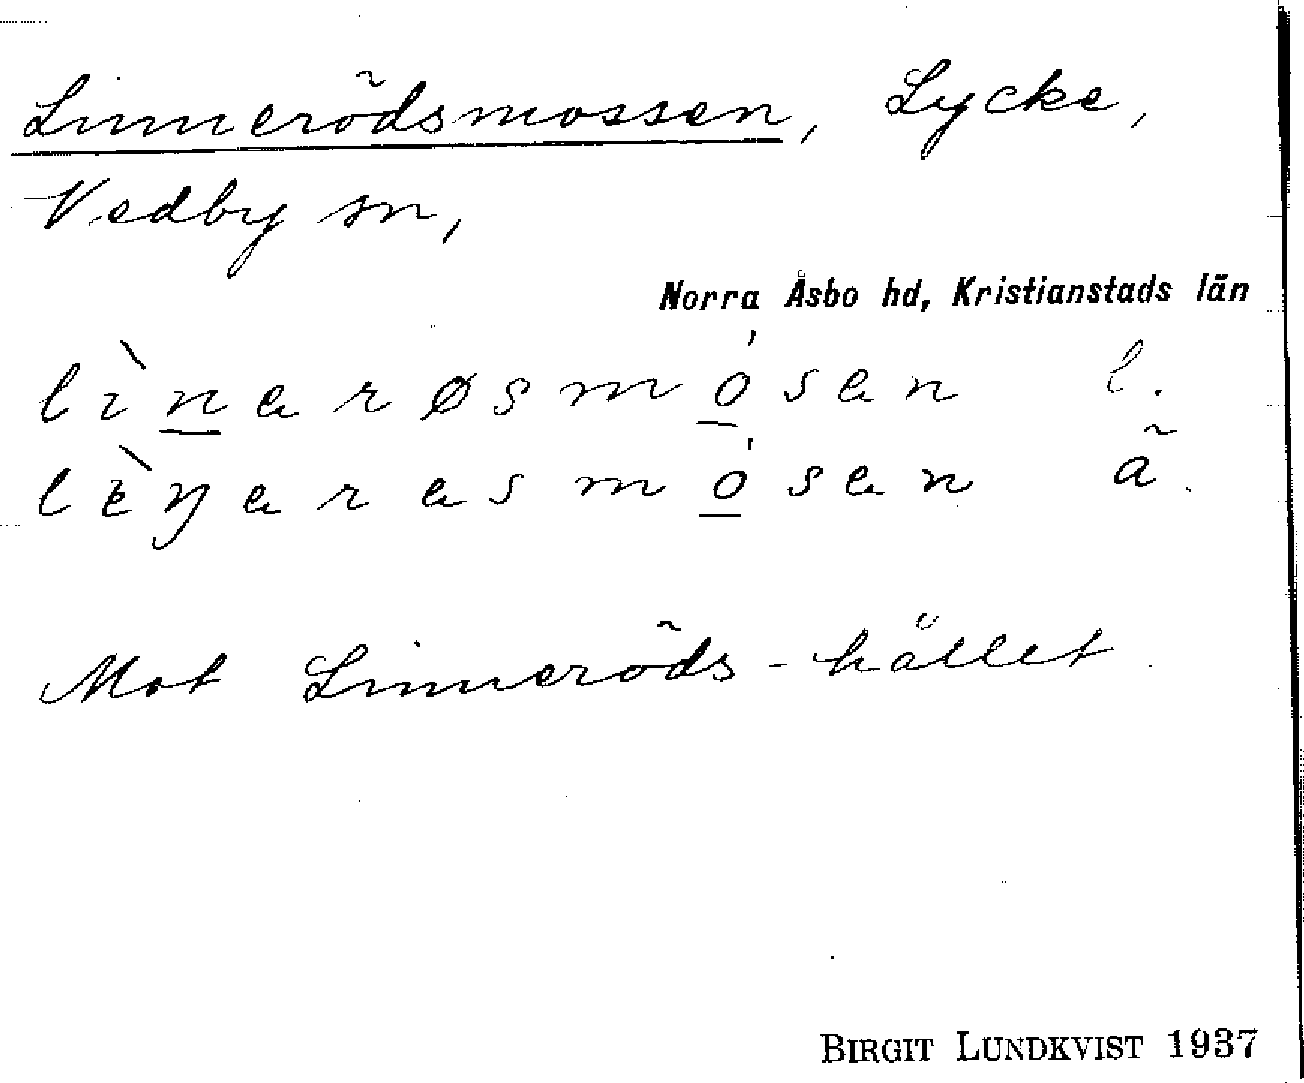 Linnerödsmossen, Lycke,
Vedby sn,
Norra Åsbo hd, Kristianstads län
lìnarøsmósen l.
lèŋarasmósen ä.
Mot Linneröds-hållet.
BIRGIT LUNDKVIST 1937